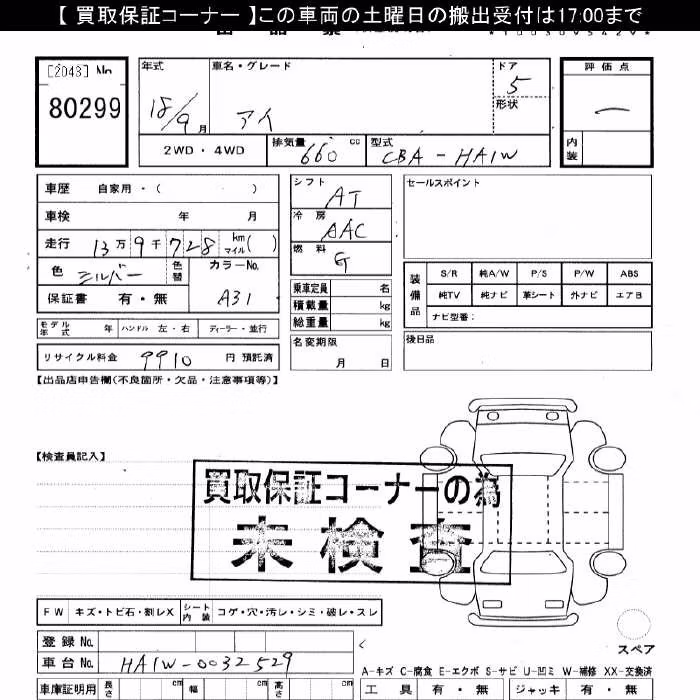 【 買取保証コーナー 】この車両の土曜日の搬出受付は17:00まで
[2043] No.
80299
年式
18/9月
車名・グレード
アイ
ドア
5
形状
評価点
一
内装
2WD・4WD
排気量 660 cc
型式 CBA-HA1W
車歴 自家用・( )
車検 年 月
走行 13万9千728 km マイル( )
色 シルバー
色替
カラーNo. A31
保証書 有・無
シフト
AT
冷房
AAC
燃料
G
乗車定員 名
積載量 kg
総重量 kg
名変期限
月 日
セールスポイント
装備品
S/R 純A/W P/S P/W ABS
純TV 純ナビ 革シート 外ナビ エアB
ナビ型番:
後日品
モデル年式 年 ハンドル 左・右 ディーラー・並行
リサイクル料金 9910 円 預託済
【出品店申告欄(不良箇所・欠品・注意事項等)】
【検査員記入】
買取保証コーナーの為
未検査
FW キズ・トビ石・割レX シート内装 コゲ・穴・汚レ・シミ・破レ・スレ
登録No.
車台No. HA1W-0032529
スペア
A-キズ C-腐食 E-エクボ S-サビ U-凹ミ W-補修 XX-交換済
車庫証明用 長さ cm 幅 cm 高さ cm
工具 有・無 ジャッキ 有・無